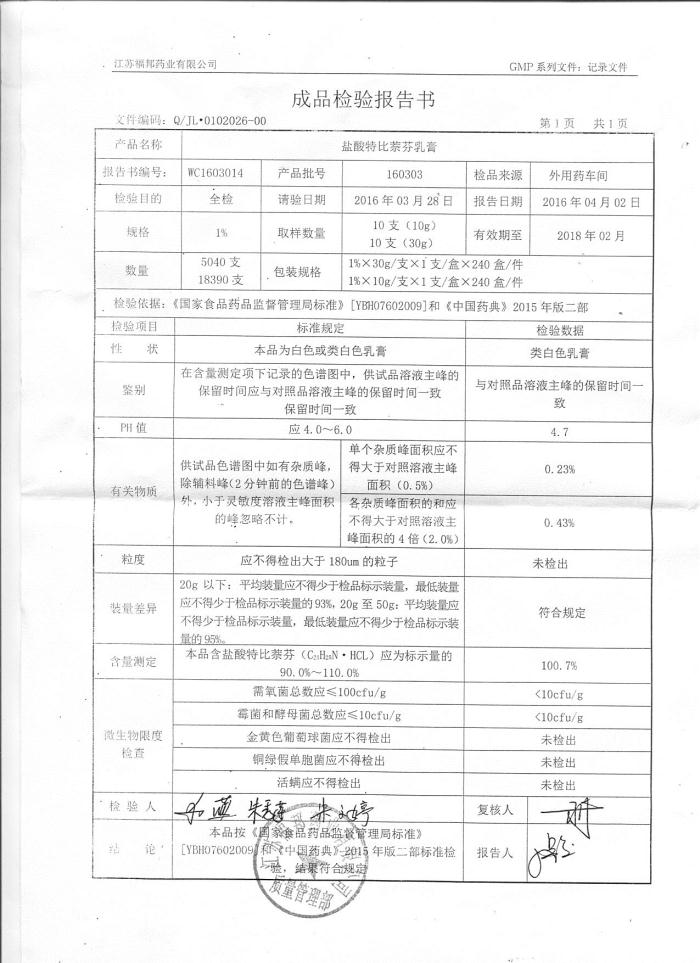 江苏福邦药业有限公司 GMP 系列文件：记录文件
成品检验报告书
文件编码：Q/JL•0102026-00 第 1 页 共 1 页
产品名称 盐酸特比萘芬乳膏
报告书编号： WC1603014 产品批号 160303 检品来源 外用药车间
检验目的 全检 请验日期 2016 年 03 月 28 日 报告日期 2016 年 04 月 02 日
规格 1% 取样数量 10 支（10g） 有效期至 2018 年 02 月
10 支（30g）
数量 5040 支 包装规格 1%×30g/支×1 支/盒×240 盒/件
18390 支 1%×10g/支×1 支/盒×240 盒/件
检验依据：《国家食品药品监督管理局标准》[YBH07602009]和《中国药典》2015 年版二部
检验项目 标准规定 检验数据
性 状 本品为白色或类白色乳膏 类白色乳膏
鉴别 在含量测定项下记录的色谱图中，供试品溶液主峰的
保留时间应与对照品溶液主峰的保留时间一致
保留时间一致
与对照品溶液主峰的保留时间一
致
PH 值 应 4.0～6.0 4.7
有关物质 供试品色谱图中如有杂质峰，
除辅料峰（2 分钟前的色谱峰）
外，小于灵敏度溶液主峰面积
的峰忽略不计。
单个杂质峰面积应不
得大于对照溶液主峰
面积（0.5%）
0.23%
各杂质峰面积的和应
不得大于对照溶液主
峰面积的 4 倍（2.0%）
0.43%
粒度 应不得检出大于 180um 的粒子 未检出
装量差异 20g 以下：平均装量应不得少于检品标示装量，最低装量
应不得少于检品标示装量的 93%，20g 至 50g：平均装量应
不得少于检品标示装量，最低装量应不得少于检品标示装
量的 95%。
符合规定
含量测定 本品含盐酸特比萘芬（C₂₁H₂₅N·HCL）应为标示量的
90.0%～110.0%
100.7%
微生物限度
检查
需氧菌总数应≤100cfu/g <10cfu/g
霉菌和酵母菌总数应≤10cfu/g <10cfu/g
金黄色葡萄球菌应不得检出 未检出
铜绿假单胞菌应不得检出 未检出
活螨应不得检出 未检出
检 验 人 复核人
结 论 本品按《国家食品药品监督管理局标准》
[YBH07602009]和《中国药典》2015 年版二部标准检
验，结果符合规定
报告人
质量管理部